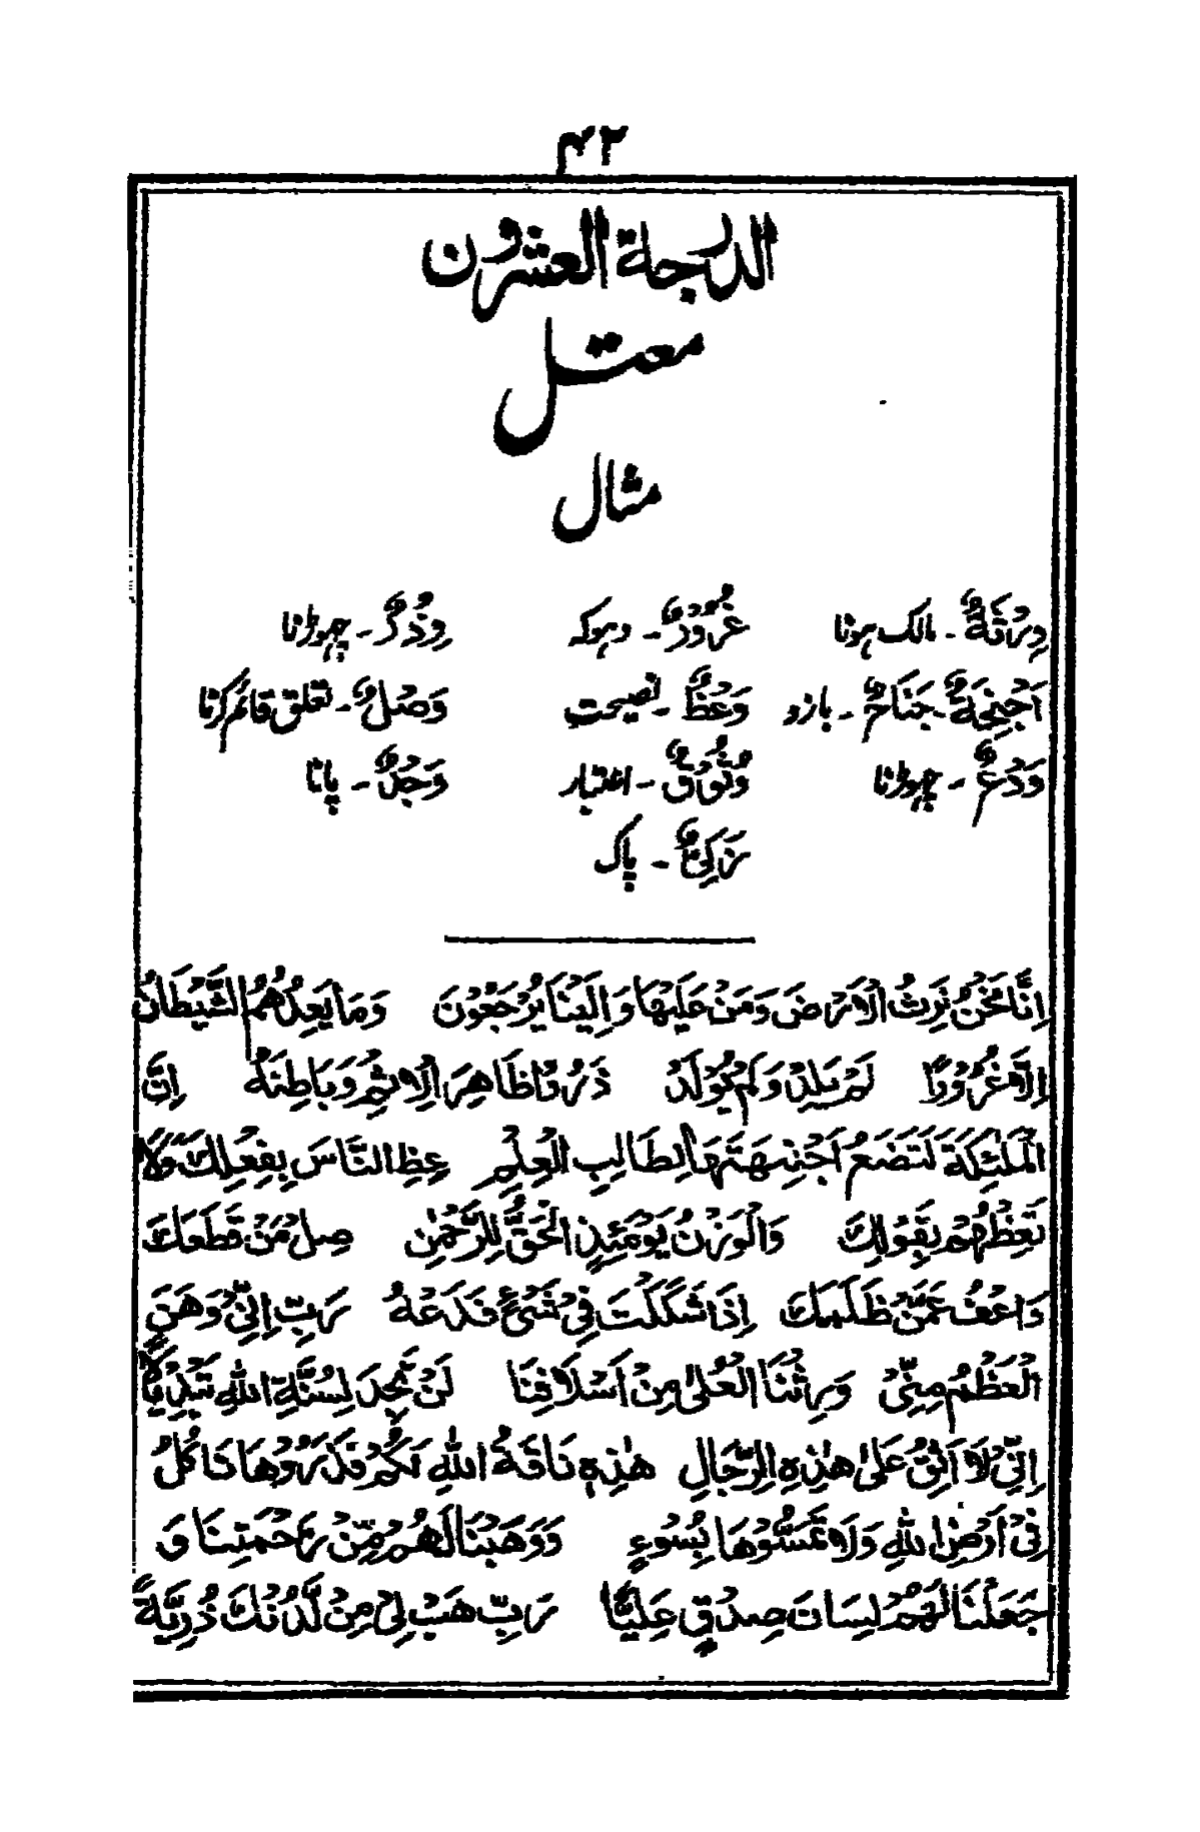 ۴۲
الدرجة العشرون
معتل
مثال
وِرَاثَةٌ - مالک ہونا غُرُوْرٌ - دہوکہ وِذْرٌ - چھوڑنا
اَجْنِحَةٌ - جَنَاحٌ - بازو وَعْظٌ - نصیحت وَصْلٌ - تعلق قائم کرنا
وَدْعٌ - چھوڑنا وُثُوْقٌ - اعتبار وَجْدٌ - پانا
زَكِیٌّ - پاک
اِنَّا نَحْنُ نَرِثُ الْاَرْضَ وَمَنْ عَلَيْهَا وَاِلَيْنَا يُرْجَعُوْنَ وَمَا يَعِدُهُمُ الشَّيْطَانُ
اِلَّا غُرُوْرًا لَمْ يَلِدْ وَلَمْ يُوْلَدْ ذَرُوْا ظَاهِرَ الْاِثْمِ وَبَاطِنَهُ اِنَّ
الْمَلٰئِكَةَ لَتَضَعُ اَجْنِحَتَهَا لِطَالِبِ الْعِلْمِ عِظِ النَّاسَ بِفِعْلِكَ وَلَا
تَعِظْهُمْ بِقَوْلِكَ وَالْوَزْنُ يَوْمَئِذٍ الْحَقُّ لِلرَّحْمٰنِ صِلْ مَنْ قَطَعَكَ
وَاعْفُ عَمَّنْ ظَلَمَكَ اِذَا شَكَكْتَ فِيْ شَيْءٍ فَدَعْهُ رَبِّ اِنِّيْ وَهَنَ
الْعَظْمُ مِنِّيْ وَرِثْنَا الْعُلٰى مِنْ اَسْلَافِنَا لَنْ تَجِدَ لِسُنَّةِ اللهِ تَبْدِيْلًا
اِنِّيْ لَا اَثِقُ عَلٰى هٰذِهِ الرِّجَالِ هٰذِهٖ نَاقَةُ اللهِ لَكُمْ فَذَرُوْهَا تَاكُلْ
فِيْ اَرْضِ اللهِ وَلَا تَمَسُّوْهَا بِسُوْءٍ وَوَهَبْنَا لَهُمْ مِّنْ رَحْمَتِنَا وَ
جَعَلْنَا لَهُمْ لِسَانَ صِدْقٍ عَلِيًّا رَبِّ هَبْ لِيْ مِنْ لَّدُنْكَ ذُرِّيَّةً